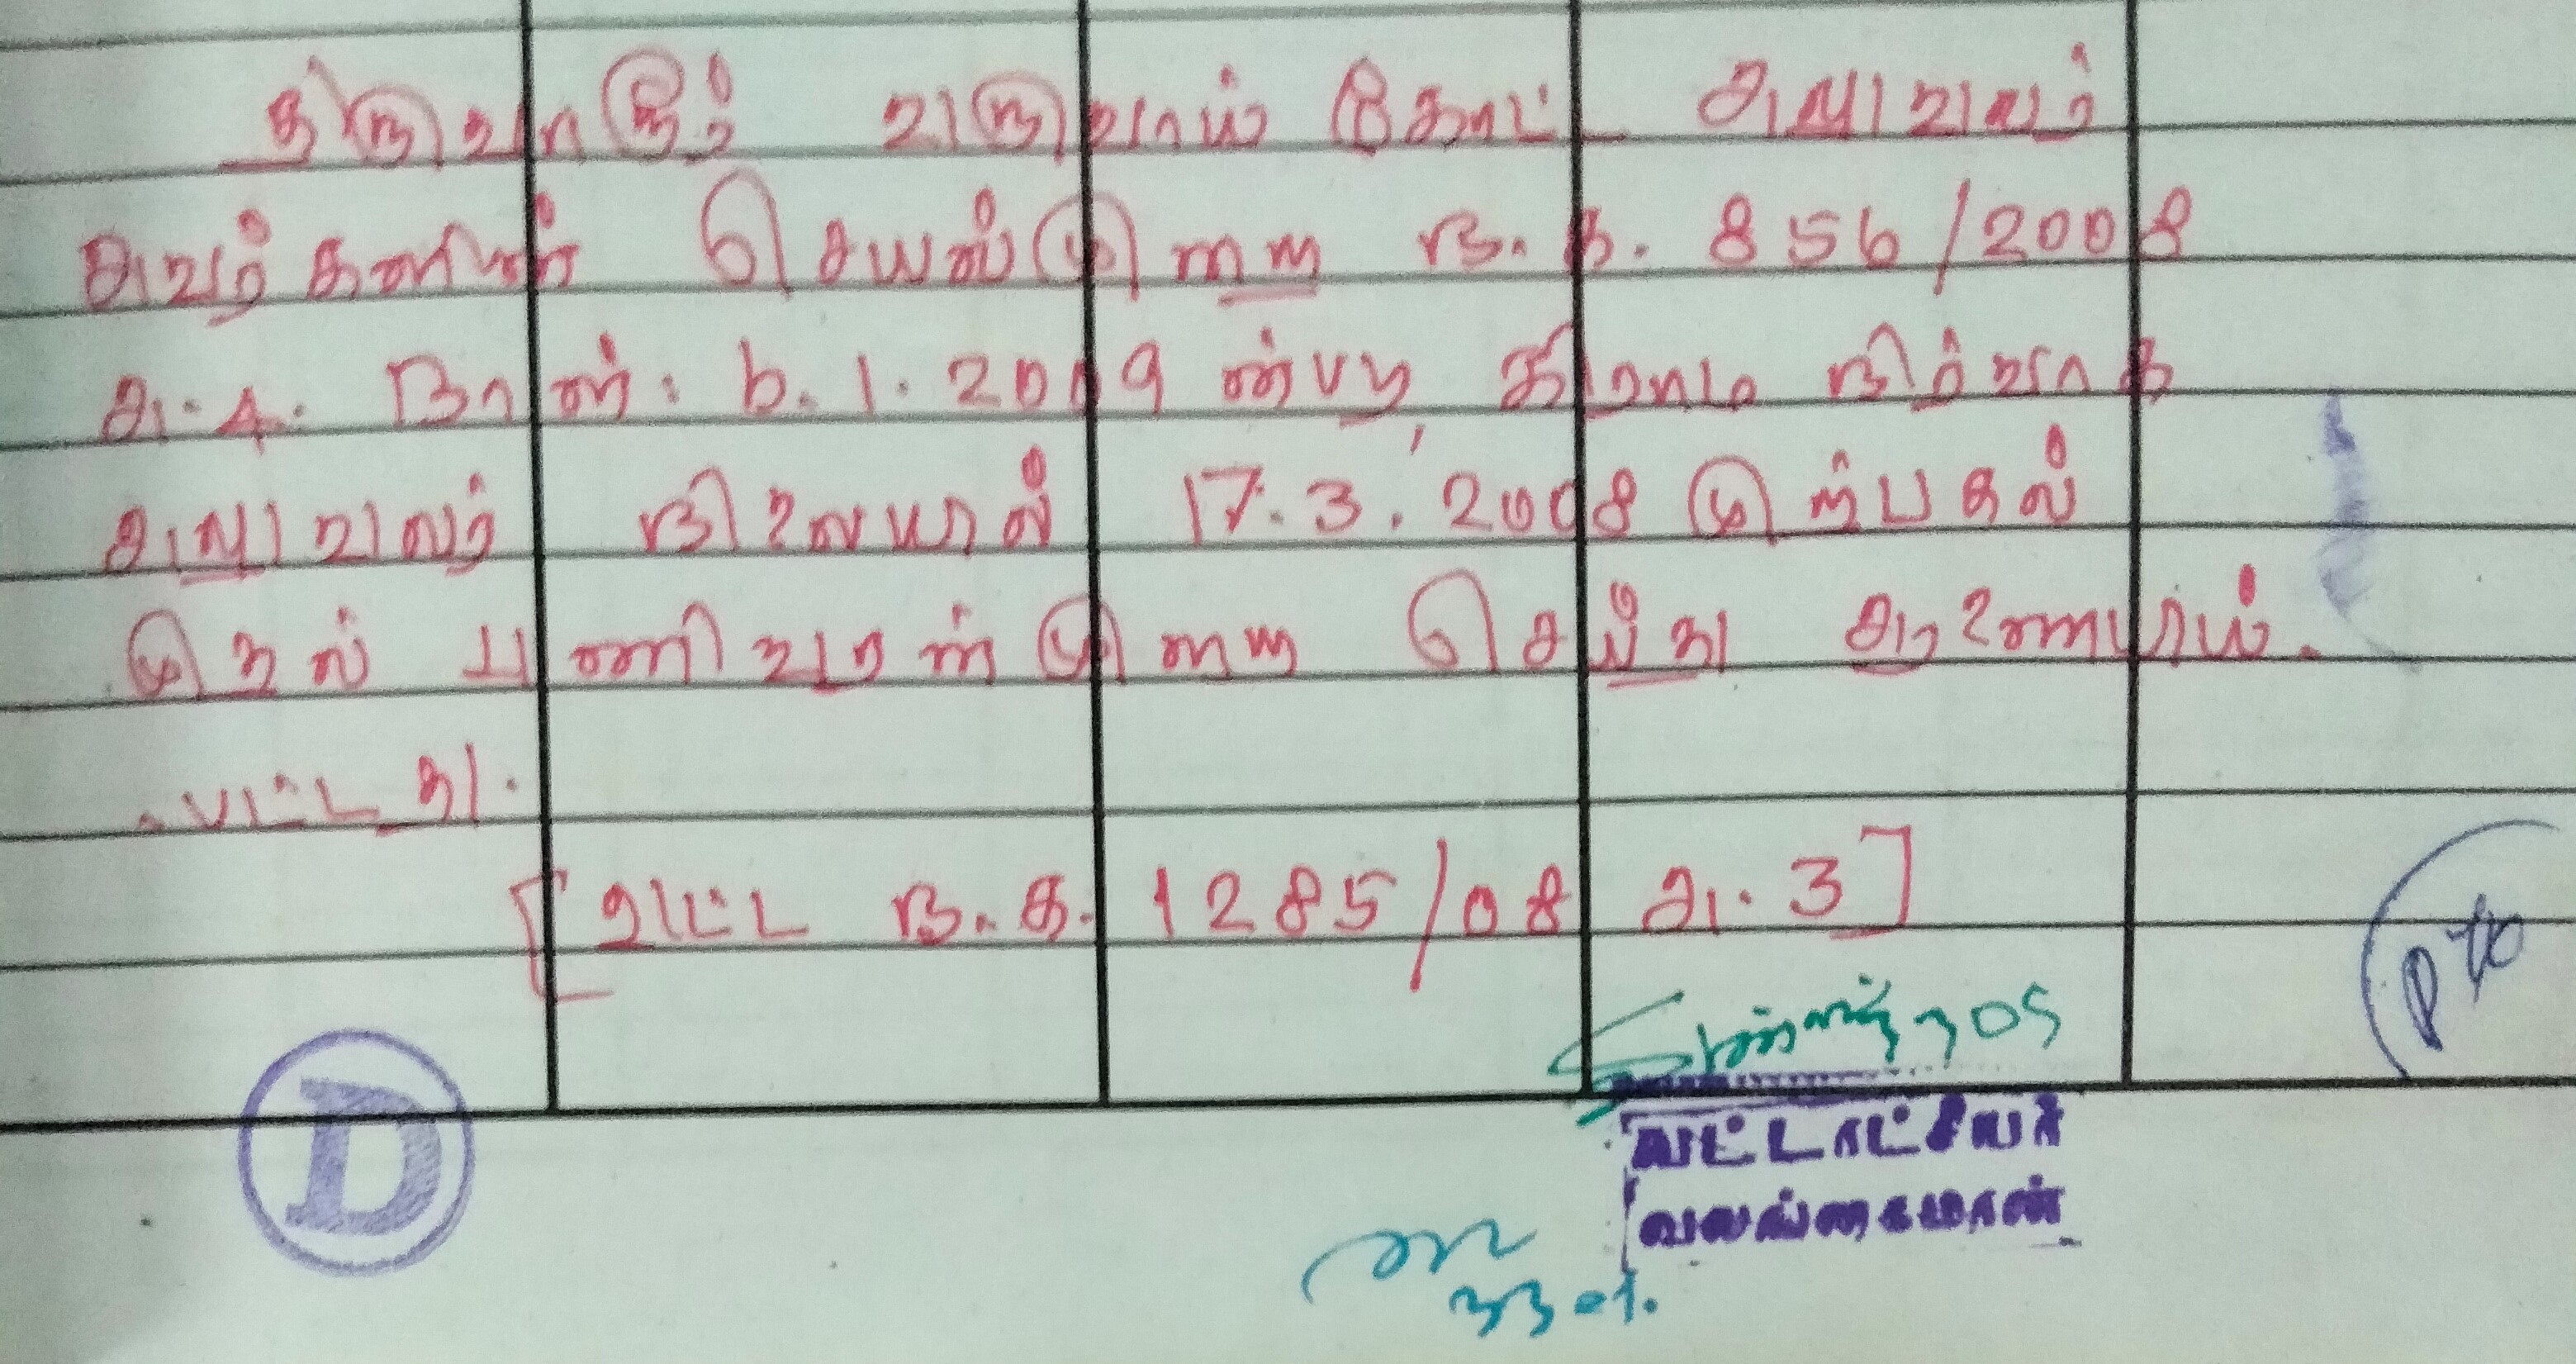 திருவாரூர் வருவாய் கோட்ட அலுவலர்
அவர்களின் செயல்முறை ந.க. 856/2008
அ.4. நாள்: 6.1.2009 ன்படி கிராம நிர்வாக
அலுவலர் நிலையில் 17.3.2008 முற்பகல்
முதல் பணிவரன்முறை செய்து ஆணையாயி.
..பட்டது.
[வட்ட ந.க. 1285/08 அ.3]
வட்டாட்சியர்
வலங்கைமான்
D
PTO